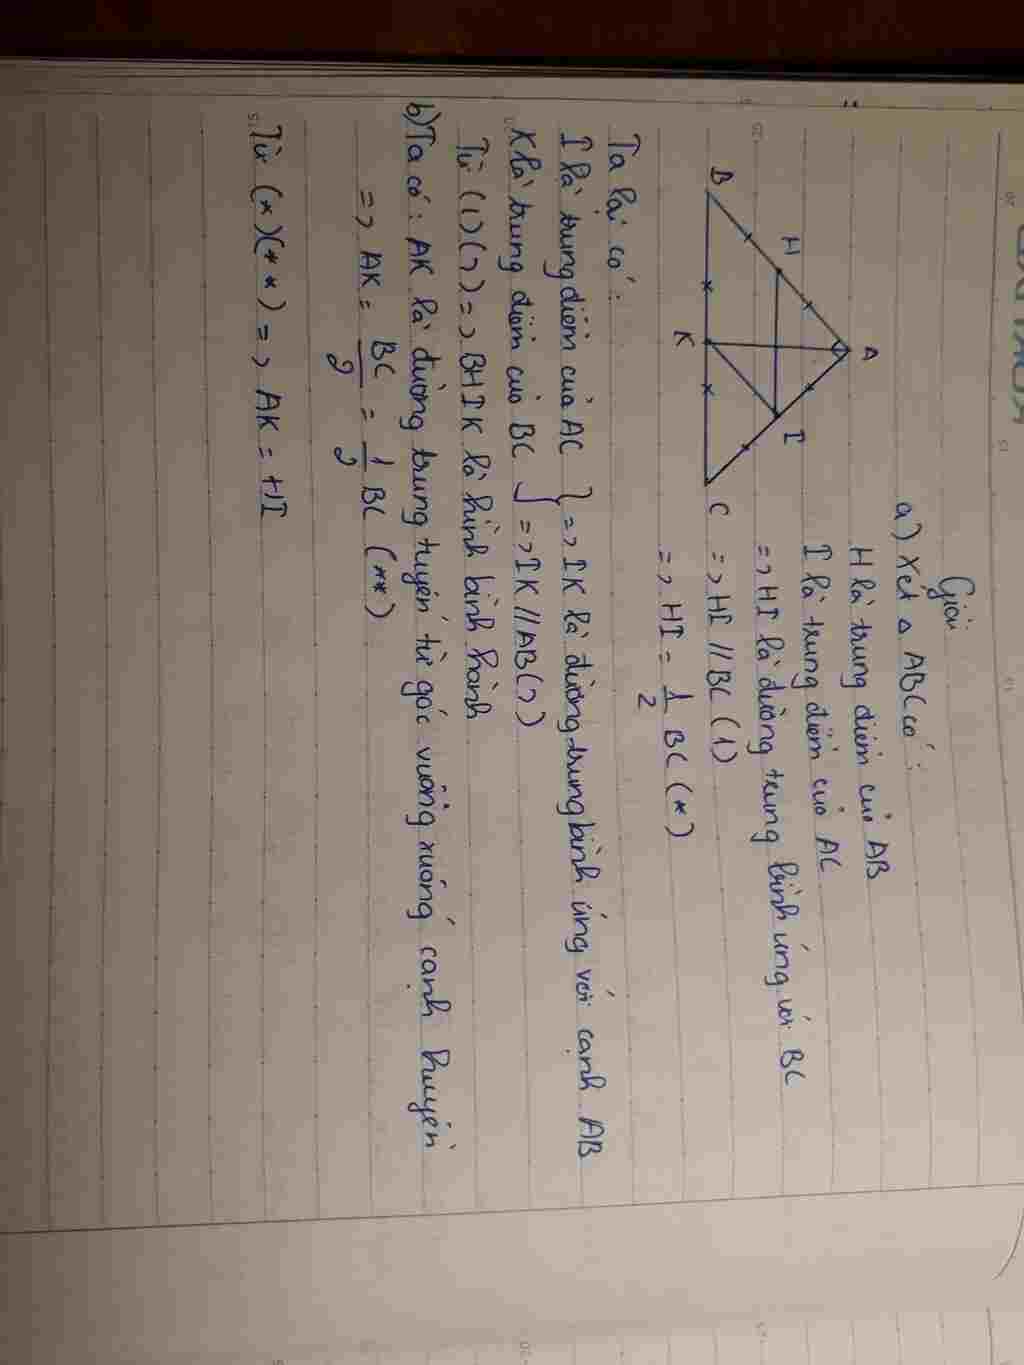 Giải
a) Xét △ ABC có :
H là trung điểm của AB
I là trung điểm của AC
=> HI là đường trung bình ứng với BC
=> HI // BC (1)
=> HI = 1/2 BC (*)
A
H
I
B
K
C
Ta lại có :
I là trung điểm của AC } => IK là đường trung bình ứng với cạnh AB
K là trung điểm của BC } => IK // AB (2)
Từ (1) (2) => BHIK là hình bình hành
b) Ta có : AK là đường trung tuyến từ góc vuông xuống cạnh huyền
=> AK = BC/2 = 1/2 BC (**)
Từ (*) (**) => AK = HI